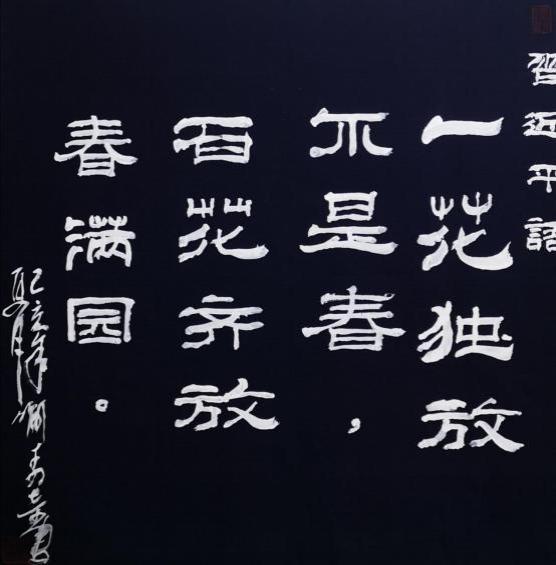 习近平语
一花独放
不是春，
百花齐放
春满园。